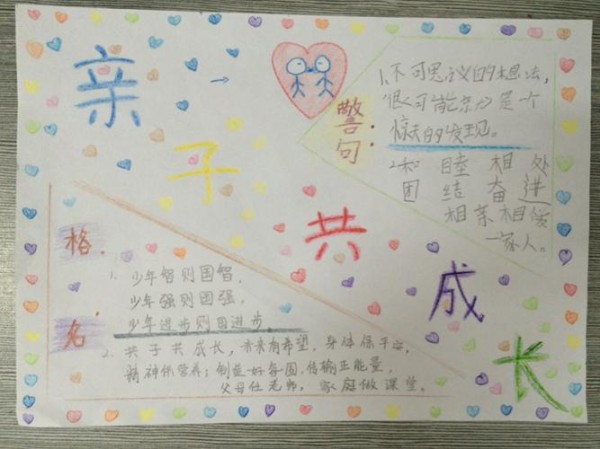 亲
子
共
成
长
警句:
1、不可思议的想法,
很可能
是一个
惊天的发现。
2、和睦相处
团结奋进
相亲相爱
一家人。
格
名
1、少年智则国智,
少年强则国强,
少年进步则国进步。
2、共子共成长,未来有希望,身体保平安,
精神保营养;创造好氛围,传输正能量,
父母任老师。家庭做课堂。